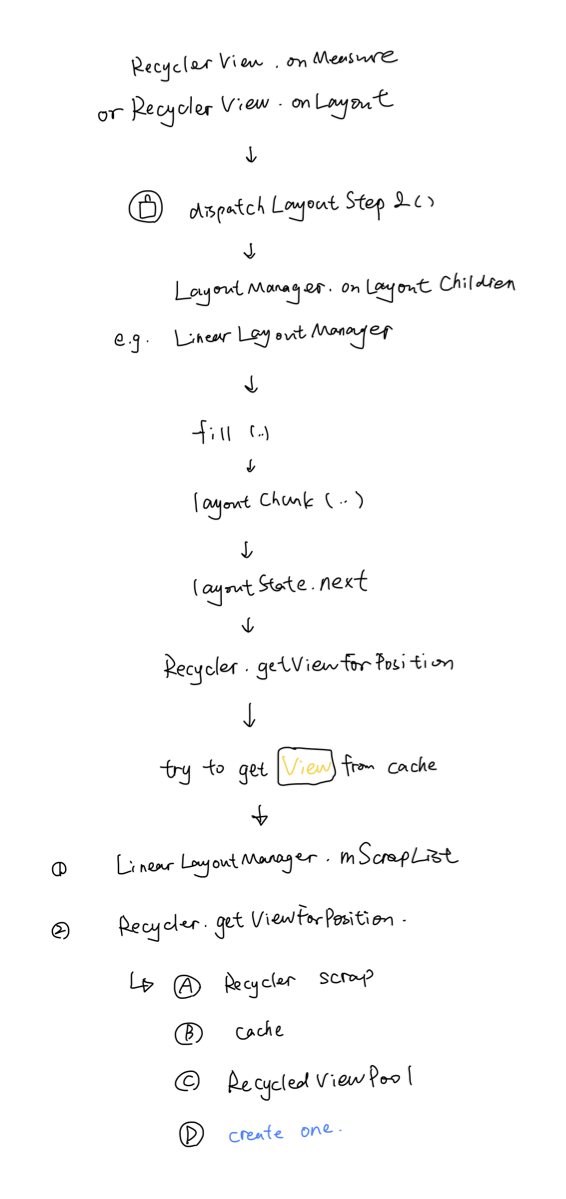 RecyclerView.onMeasure
or RecyclerView.onLayout
↓
dispatchLayoutStep2()
↓
LayoutManager.onLayoutChildren
e.g. LinearLayoutManager
↓
fill (..)
↓
layoutChunk (..)
↓
layoutState.next
↓
Recycler.getViewForPosition
↓
try to get View from cache
↓
① LinearLayoutManager.mScrapList
② Recycler.getViewForPosition.
↳ Ⓐ Recycler scrap
Ⓑ cache
Ⓒ RecycledViewPool
Ⓓ create one.